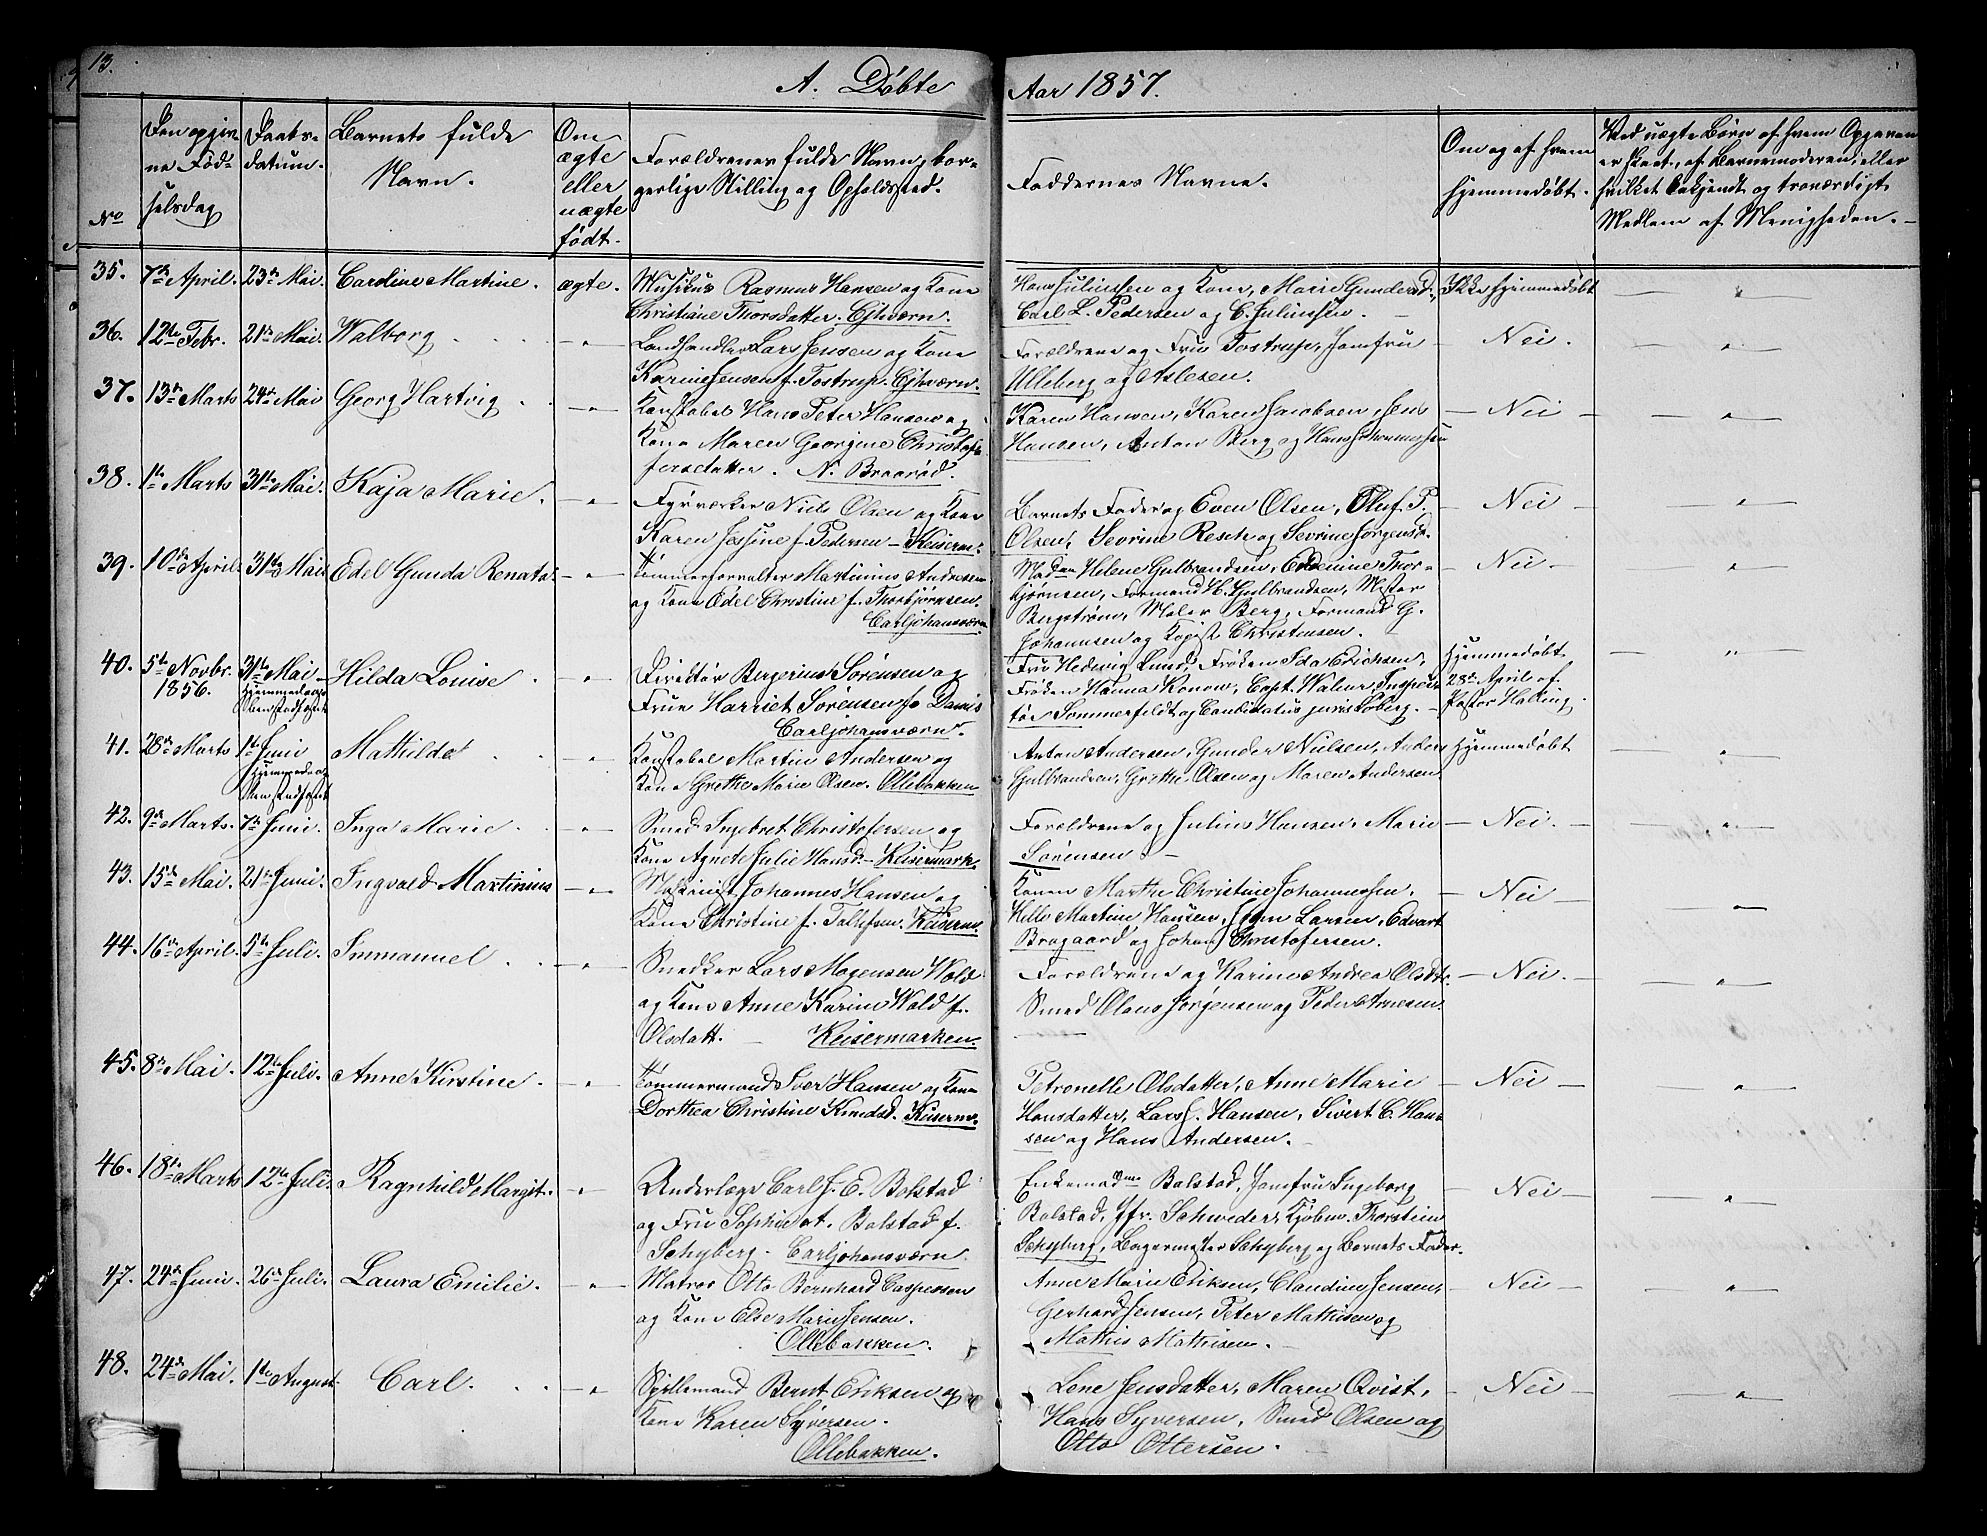 13.
A. Döbte Aar 1857.
No
Den opgiv-
ne Föd-
selsdag
Daabs-
datum.
Barnets fulde
Navn.
Om
ægte
eller
uægte
födt.
Forældrenes fulde Navn, bor-
gerlige Stilling og Opholdssted.
Faddernes Navne.
Om og af hvem
hjemmedöbt.
Ved uægte Börn af hvem Opgaven
er skeet, af Barnemoderen, eller
hvilket bekjendt og troværdigt
Medlem af Menigheden. -
35. 7de April. 23de Mai. Cardine Martine. ægte.
Musikus Rasmus Hansen og Kone
Christiane Thorsdatter. Ejhværn.
Hans Juliussen og Kone, Marie Gundersd.,
Carl L. Pedersen og C. Juliussen. -
Ikke hjemmedöbt
36. 12te Febr. 21de Mai. Walborg - " -
Landhandler Lars Jensen og Kone
Karine Jensen f. Tostrup. Ejhværn.
Forældrene og Fru Tostrup, Jomfru
Ulleberg og Aslesen.
- Nei.
37. 13de Marts 24de Mai Georg Hartvig - " -
Konstabel Hans Peter Hansen og
Kone Maren Georgine Christof-
fersdatter. N. Braaröd.
Karen Hansen, Karen Jacobsen, Jens
Hansen, Anton Berg og Hans Johannessen
- Nei -
38. 1te Marts 31te Mai. Kaja Marie. - " -
Fyrværker Niels Olsen og Kone
Karen Jessine f. Pedersen - Keiserm.
Barnets Fader og Even Olsen, Oluf P.
Olsen, Sevrine Resch og Sevrine Jörgensd.
- Nei -
39. 10de April. 31te Mai Edel Gunda Renata. - " -
Tömmerforvalter Martinius Andresen
og Kone Edel Christine f. Thorbjörnsen.
Carljohansværn
Madme Helene Gulbrandsen, Thor-
björnsen, Formand H. Gulbrandsen, Mester
Bergström, Maler Berg, Formand G.
Johannsen og Kopist Christensen.
- Nei. -
40. 5te Novbr.
1856.
31te Mai
Hjemmed. og
Hilda Louise - " -
Direktör Bergerius Sörensen og
Frue Harriet Sörensen f. Danis
Carljohansværn.
Fru Hedevig Lund, Fröken Ida Erichsen,
Fröken Hanna Konow, Capt. Inspek-
tör Sommerfeldt og Candidatus juris Soberg. -
Hjemmedöbt
28de April af
Pastor Halling.
41. 28de Marts 1te Juni
Hjemmed. og
Mathilde - " -
Konstabel Martin Andersen og
Kone Grethe Marie Olsen. Ollebakken
Anton Andersen, Gunder Nielsen, Anders
Gulbrandsen, Grethe Olsen og Maren Andersen
Hjemmedöbt
42. 9de Marts. 7de Juni. Inga Marie. - " -
Smed Ingebret Christofersen og
Kone Agnete Julie Hansd. - Keisermark.
Forældrene og Julius Hansen, Marie
Sörensen -
- Nei. -
43. 15de Mai. 21de Juni. Ingvald Martinius - " -
Maskinist Johannes Hansen og
Kone Christine f. Tollefsen. Keiserm.
Konen Marthe Christine Johannessen,
Helle Martine Hansen, Larsen, Edvart
Bragaard og Johan Christofersen.
- Nei -
44. 16de April. 5te Juli. Immanuel - " -
Snedker Lars Mogensen Wold
og Kone Anne Karine Wold f.
Olsdatt. - Keisermarken.
Forældrene og Karine Andrea Olsdtr.
Smed Olaus Jörgensen og Peder Arnesen.
- Nei. -
45. 8de Mai. 12te Juli. Anne Kirstine. - " -
Tömmermand Iver Hansen og Kone
Dorthea Christine Knudsd. Keiserm.
Petronelle Olsdatter, Anne Marie
Hansdatter, Lars J. Hansen, Sivert C. Han-
sen og Hans Andersen. -
- Nei -
46. 18de Marts 12te Juli. Ragnhild Margit. - " -
Underlæge Carl J. E. Bolstad
og Fru Sophie Bolstad f.
Schyberg. Carljohansværn
Enkemadme Bolstad, Jomfru Ingeborg
Bolstad, Jfr. Schweder, Kjöbm. Thorstein
Schyberg, Bagermester Schyberg og Barnets Fader.
- Nei -
47. 24de Juni. 26de Juli. Laura Emilie. - " -
Matros Otto Bernhard Caspersen
og Kone Else Marie Jensen.
Ollebakken.
Anne Marie Eriksen, Claudine Jensen,
Gerhard Jensen, Peter Mathisen og
Mathis Mathisen. -
- Nei -
48. 24de Mai. 1te August. Carl. - " -
Syllemand Bernt Eriksen og
Kone Karen Syversen.
Ollebakken.
Lene Jensdatter, Maren Qvist,
Hans Syversen, Smed Olsen og
Otto Ottersen. -
- Nei -